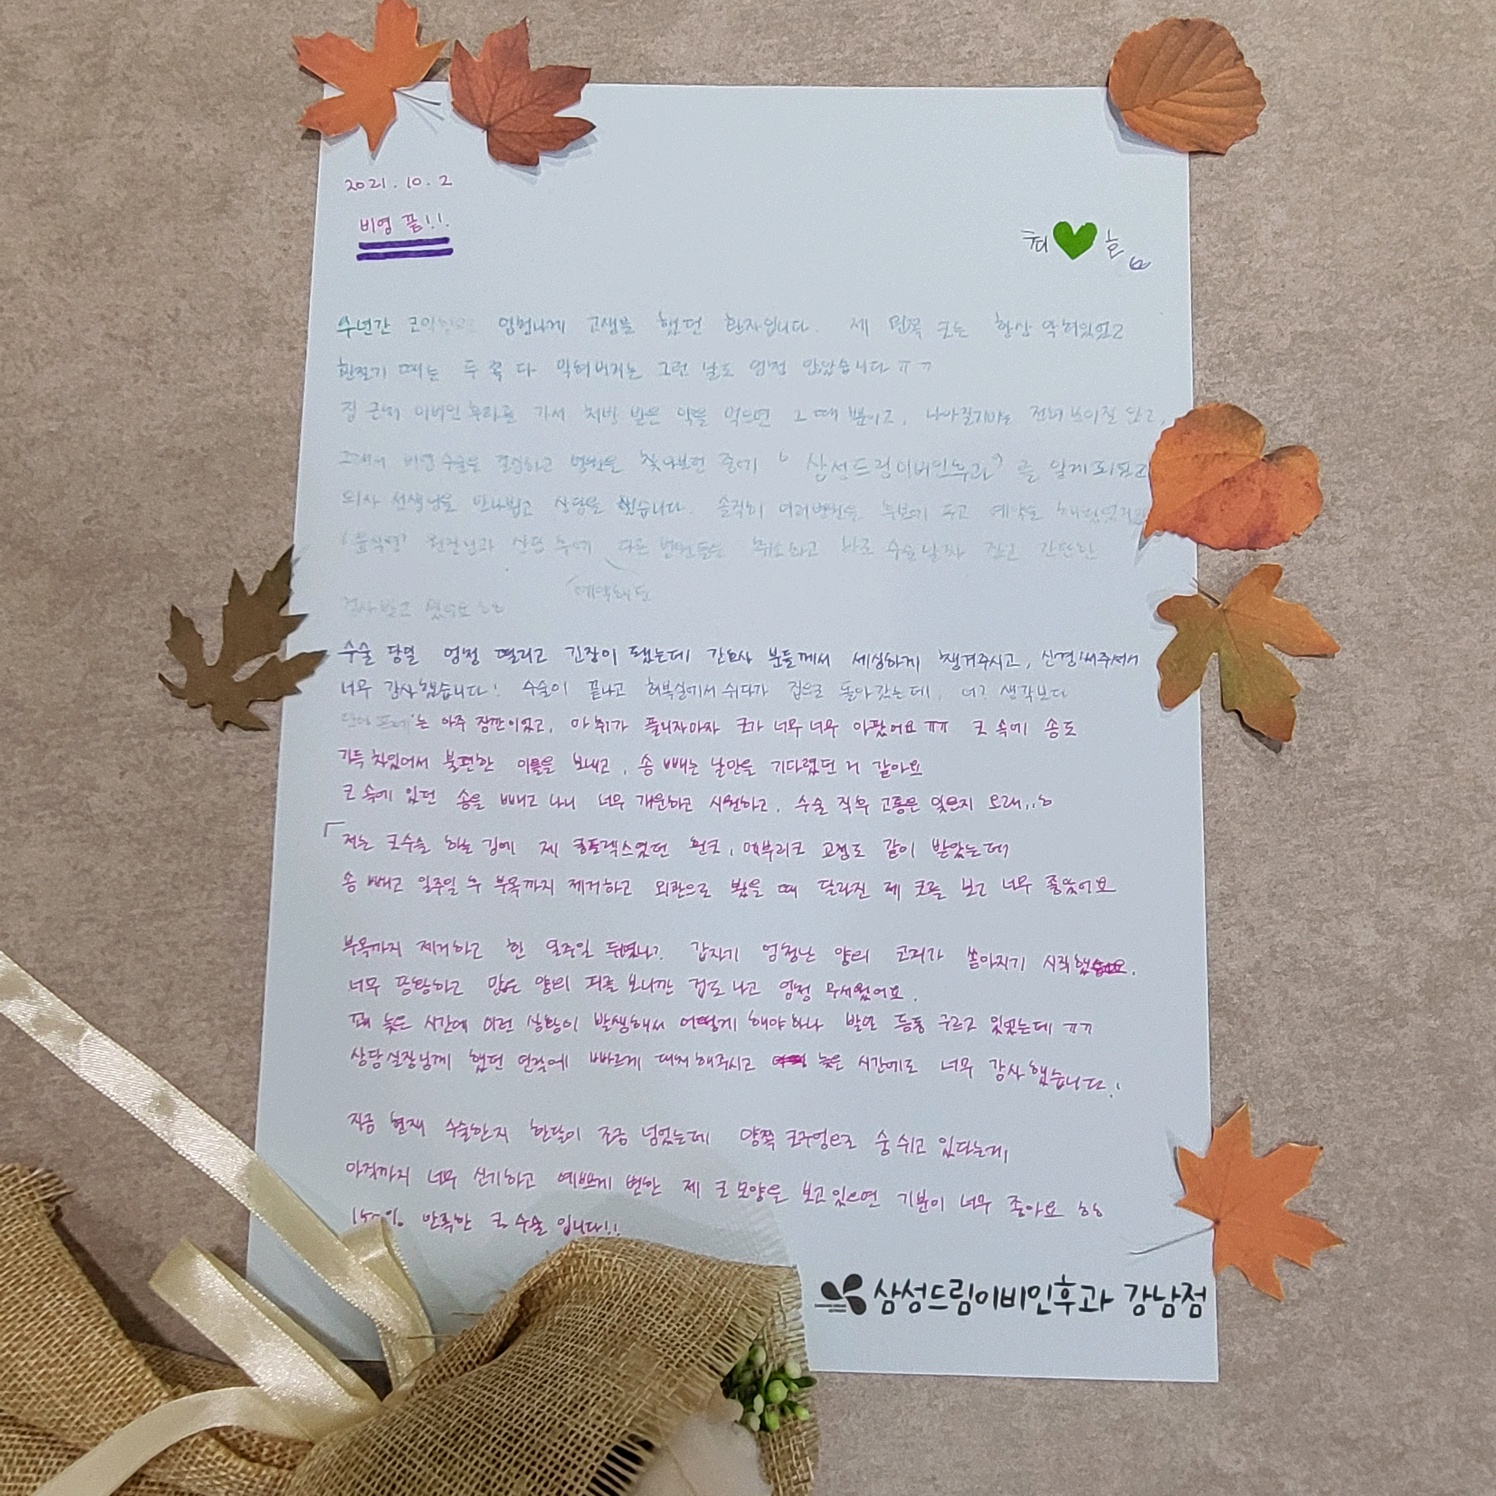 2021. 10. 2
비염 끝!!
최 ♥ 흠
수년간 엄청나게 고생을 했던 환자입니다. 제 왼쪽 코는 항상 막혀있었고
환절기 때는 두 쪽 다 막혀버리는 그런 날도 엄청 많았습니다 ㅠㅠ
집 근처 이비인후과를 가서 처방 받은 약을 먹으면 그 때 뿐이고, 나아질기미는 전혀 보이질 않고,
그래서 비염수술을 결심하고 병원을 찾아보던 중에 '삼성드림이비인후과' 를 알게되었고
의사 선생님을 만나뵙고 상담을 했습니다. 솔직히 여러병원을 후보에 두고 예약을 해놨었지만
원장님과 상담 후에 다른 병원들은 취소하고 바로 수술날짜 잡고 간단한
예약해둔
검사받고 왔어요 ㅎㅎ
수술 당일 엄청 떨리고 긴장이 됐는데 간호사 분들께서 세심하게 챙겨주시고, 신경써주셔서
너무 감사했습니다! 수술이 끝나고 회복실에서 쉬다가 집으로 돌아갔는데, 어? 생각보다
는 아주 잠깐이었고, 마취가 풀리자마자 코가 너무너무 아팠어요 ㅠㅠ 코 속에 솜도
가득 차있어서 불편한 이틀을 보내고, 솜 빼는 날만을 기다렸던 거 같아요
코 속에 있던 솜을 빼고 나니 너무 개운하고 시원하고, 수술 직후 고통은 잊은지 오래..ㅎ
「저는 코수술 하는 김에 제 콤플렉스였던 휜코, 매부리코 교정도 같이 받았는데
솜 빼고 일주일 후 부목까지 제거하고 외관으로 봤을 때 달라진 제 코를 보고 너무 좋았어요
부목까지 제거하고 한 일주일 뒤였나? 갑자기 엄청난 양의 코피가 쏟아지기 시작했어요.
너무 당황하고 많은 양의 피를 보니깐 겁도 나고 엄청 무서웠어요.
꽤 늦은 시간에 이런 상황이 발생해서 어떻게 해야하나 발만 동동 구르고 있었는데 ㅠㅠ
상담실장님께 했던 연락에 빠르게 대처해주시고 늦은 시간에도 너무 감사했습니다.!
지금 현재 수술한지 한달이 조금 넘었는데 양쪽 콧구멍으로 숨 쉬고 있다는게,
아직까지 너무 신기하고 예쁘게 변한 제 코 모양을 보고있으면 기분이 너무 좋아요 ㅎㅎ
만족한 코 수술 입니다!!
삼성드림이비인후과 강남점